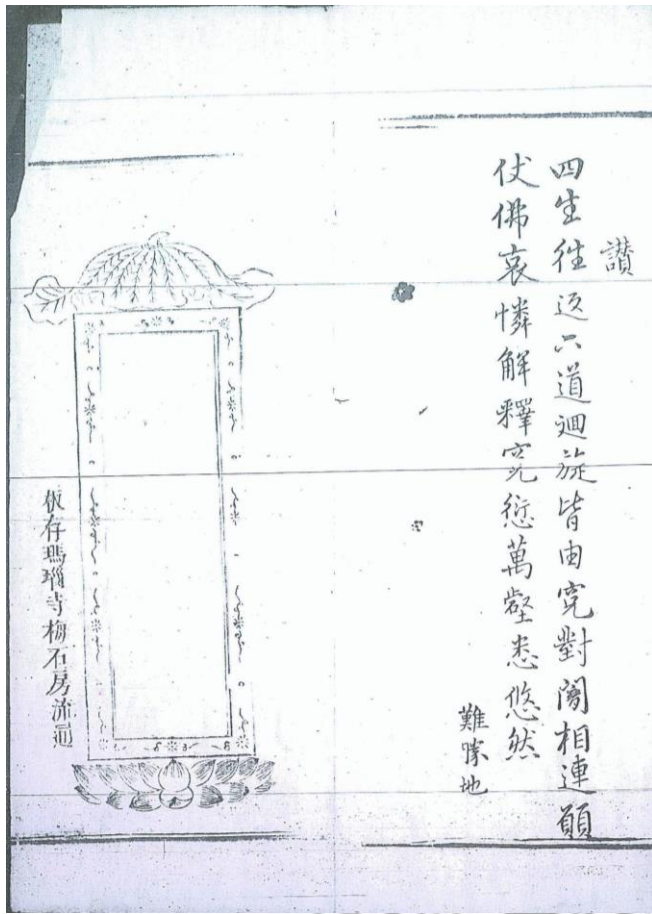 讃
四生往返六道迴旋皆由𡨚對闇相連願
仗佛哀憐解釋𡨚愆萬壑悉悠然
難勝地
板存瑪瑙寺梅石房流通